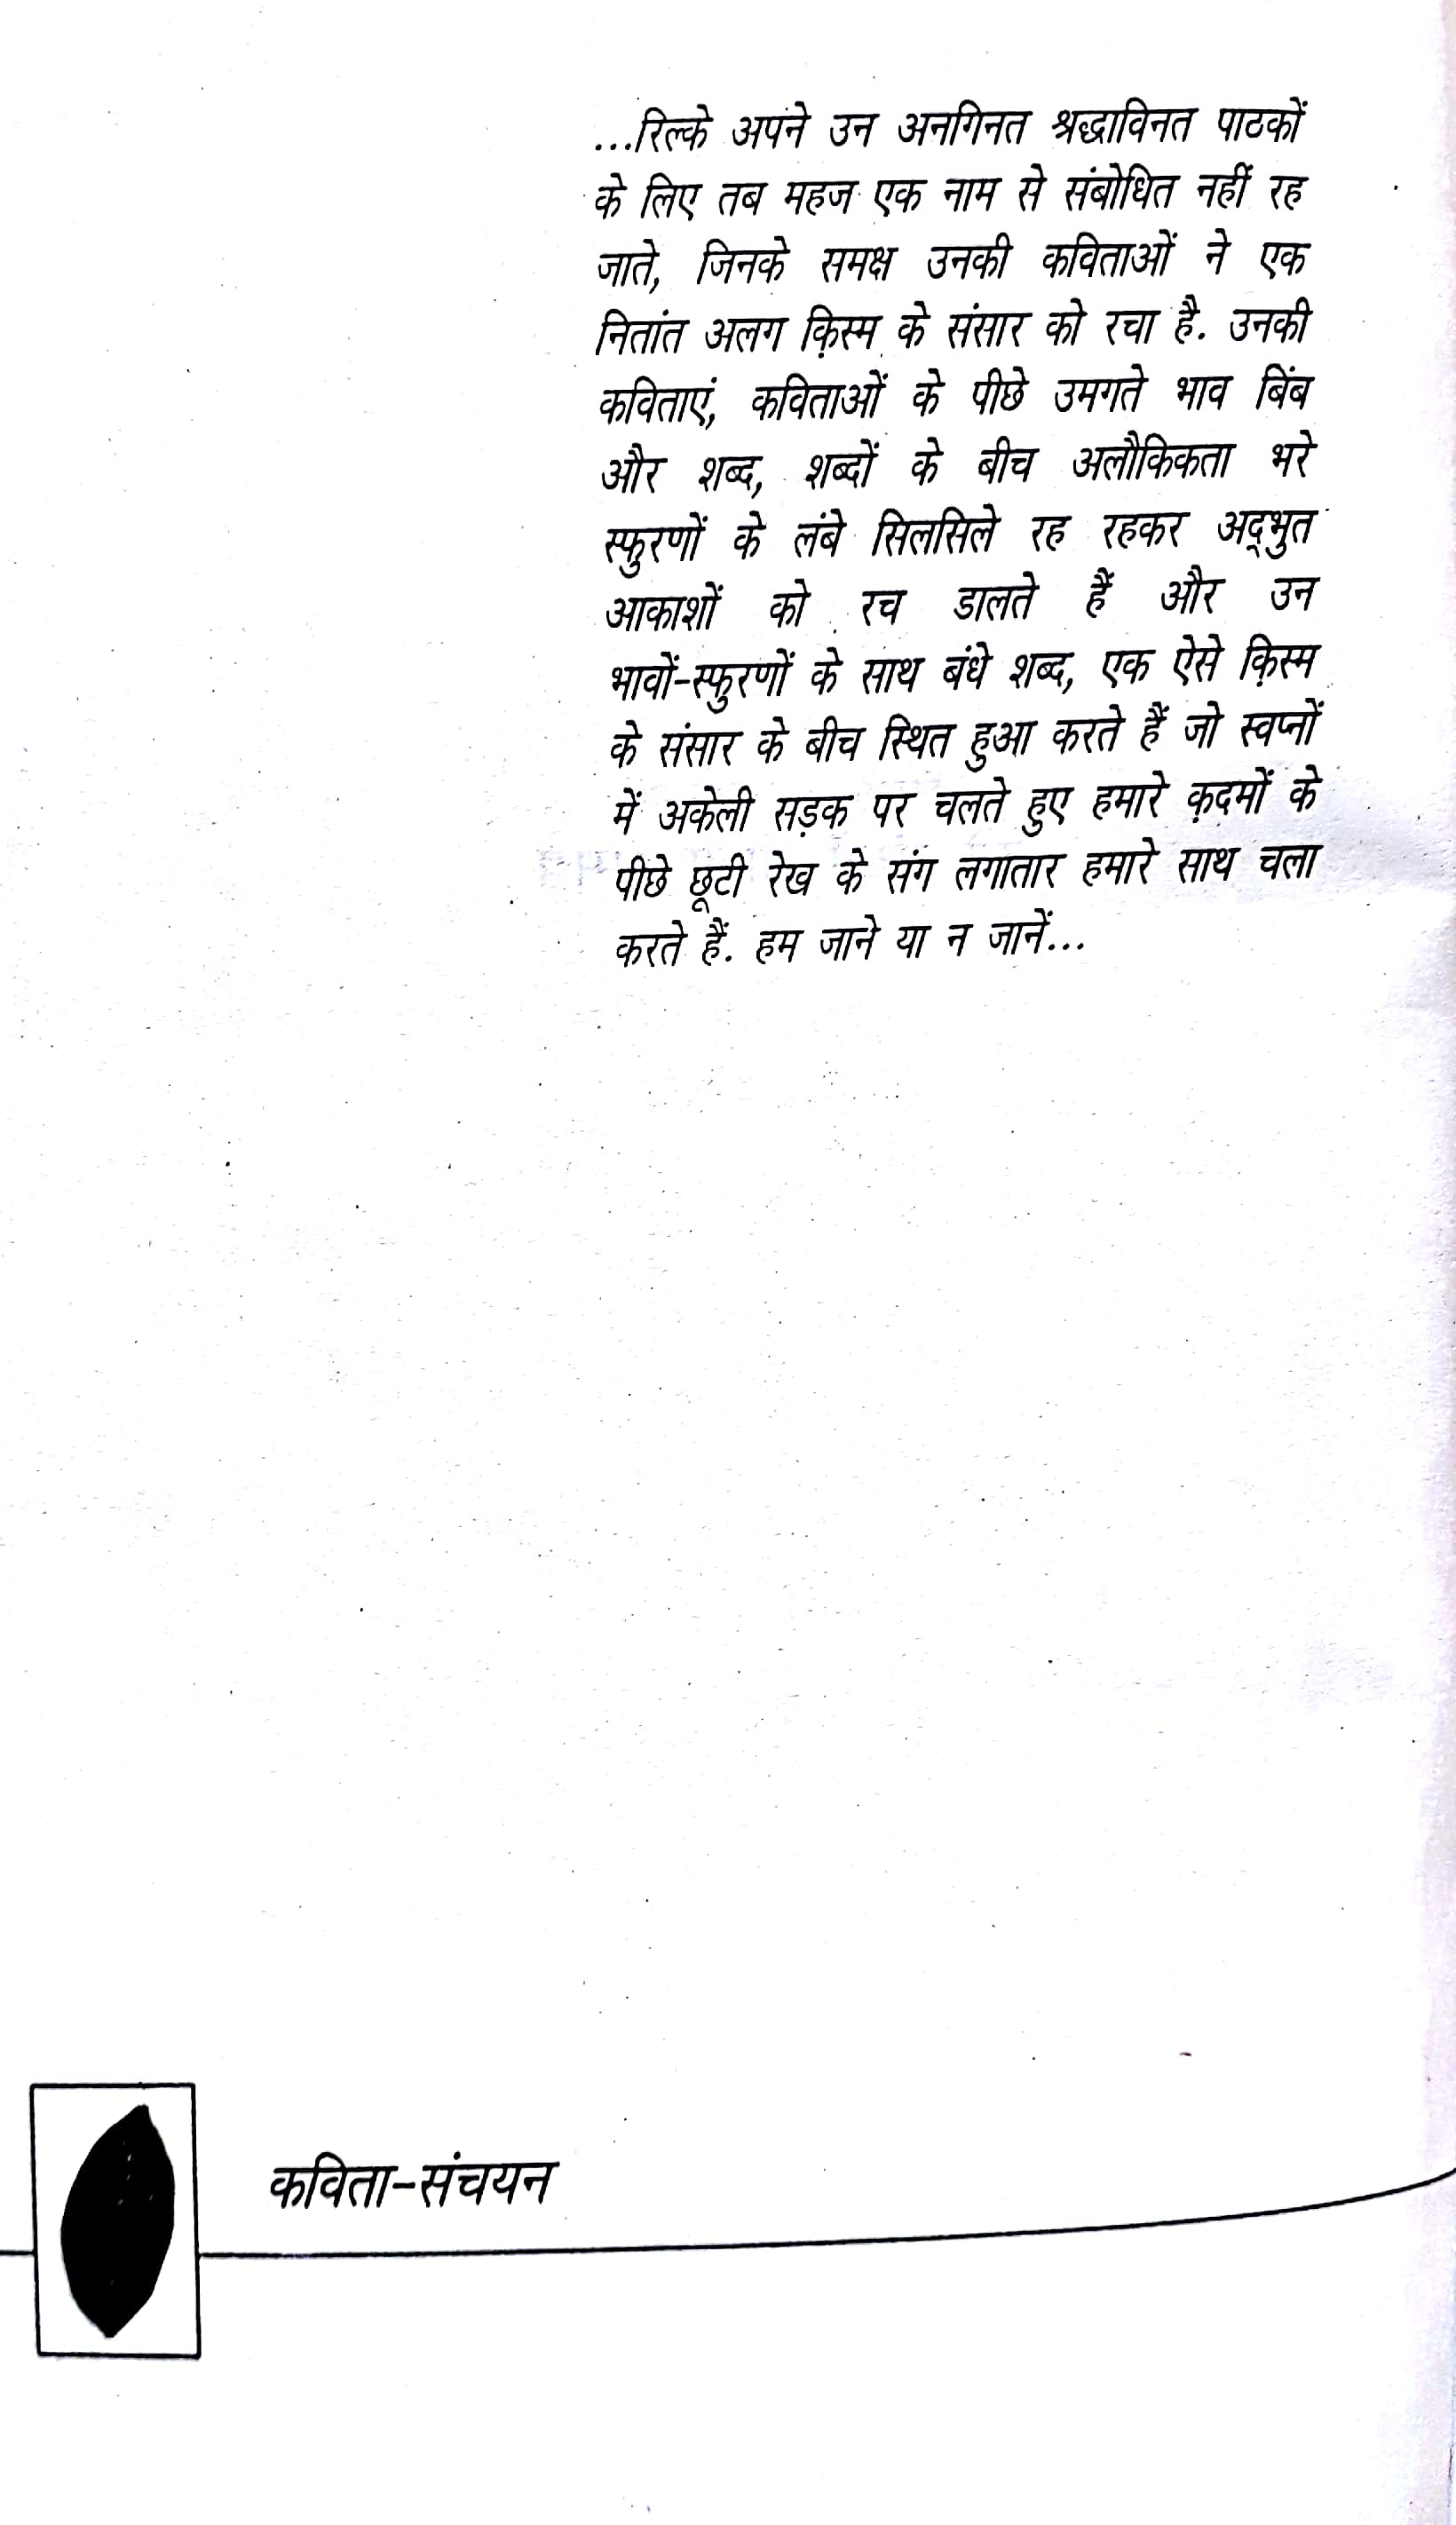 ...रिल्के अपने उन अनगिनत श्रद्धाविनत पाठकों
के लिए तब महज एक नाम से संबोधित नहीं रह
जाते, जिनके समक्ष उनकी कविताओं ने एक
नितांत अलग क़िस्म के संसार को रचा है. उनकी
कविताएं, कविताओं के पीछे उमगते भाव बिंब
और शब्द, शब्दों के बीच अलौकिकता भरे
स्फुरणों के लंबे सिलसिले रह रहकर अद्‌भुत
आकाशों को रच डालते हैं और उन
भावों-स्फुरणों के साथ बंधे शब्द, एक ऐसे क़िस्म
के संसार के बीच स्थित हुआ करते हैं जो स्वप्नों
में अकेली सड़क पर चलते हुए हमारे क़दमों के
पीछे छूटी रेख के संग लगातार हमारे साथ चला
करते हैं. हम जाने या न जानें...
कविता-संचयन